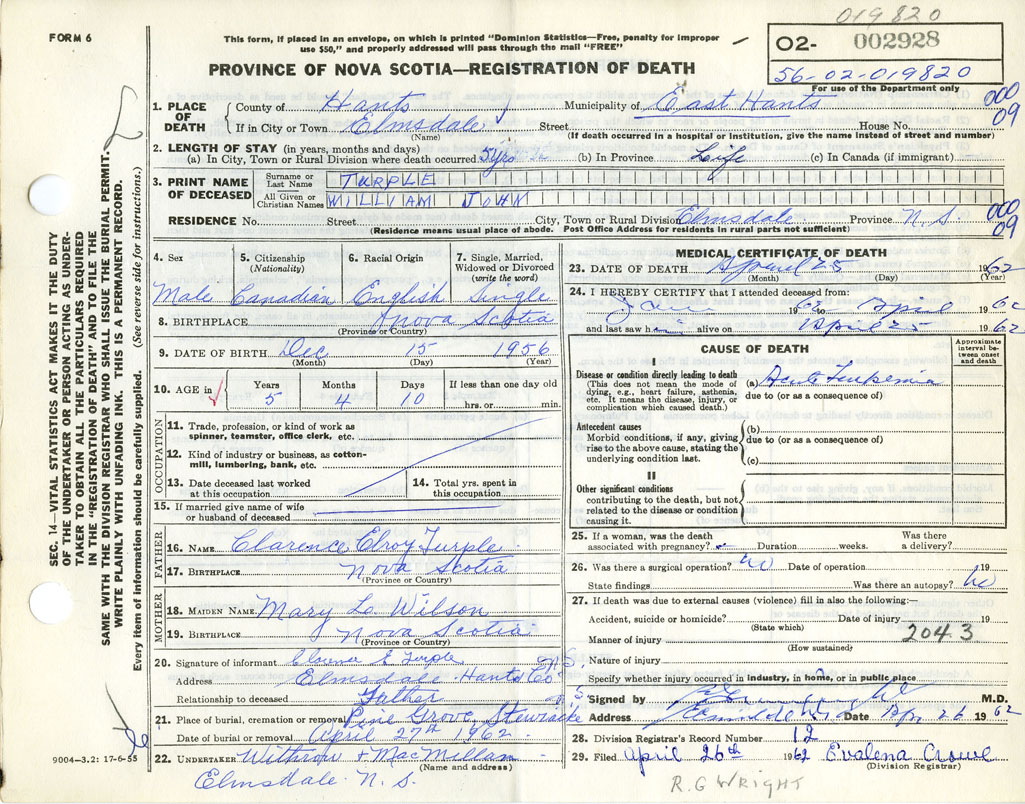 019820
FORM 6
This form, if placed in an envelope, on which is printed "Dominion Statistics—Free, penalty for improper
use $50," and properly addressed will pass through the mail "FREE"
02- 002928
56-02-019820
For use of the Department only
PROVINCE OF NOVA SCOTIA—REGISTRATION OF DEATH
1. PLACE OF DEATH
County of Hants Municipality of East Hants 000
If in City or Town Elmsdale Street House No. 09
(Name) (If death occurred in a hospital or institution, give the name instead of street and number)
2. LENGTH OF STAY (in years, months and days)
(a) In City, Town or Rural Division where death occurred 5 yrs (b) In Province Life (c) In Canada (if immigrant)
3. PRINT NAME OF DECEASED
Surname or Last Name TURPLE
All Given or Christian Names WILLIAM JOHN
RESIDENCE No. Street City, Town or Rural Division Elmsdale Province N.S. 000 09
(Residence means usual place of abode. Post Office Address for residents in rural parts not sufficient)
4. Sex 5. Citizenship (Nationality) 6. Racial Origin 7. Single, Married, Widowed or Divorced (write the word)
Male Canadian English Single
8. BIRTHPLACE Nova Scotia
(Province or Country)
9. DATE OF BIRTH Dec 15 1956
(Month) (Day) (Year)
10. AGE in Years Months Days If less than one day old
5 4 10 hrs. or min.
OCCUPATION
11. Trade, profession, or kind of work as
spinner, teamster, office clerk, etc.
12. Kind of industry or business, as cotton-
mill, lumbering, bank, etc.
13. Date deceased last worked
at this occupation
14. Total yrs. spent in
this occupation
15. If married give name of wife
or husband of deceased
FATHER
16. NAME Clarence Elroy Turple
17. BIRTHPLACE Nova Scotia
(Province or Country)
MOTHER
18. MAIDEN NAME Mary L. Wilson
19. BIRTHPLACE Nova Scotia
(Province or Country)
20. Signature of informant E Turple
Address Elmsdale Hants Co N.S.
Relationship to deceased Father
21. Place of burial, cremation or removal Pine Grove, Stewiacke N.S.
Date of burial or removal April 27th 1962
22. UNDERTAKER Withrow + MacMillan
(Name and address)
Elmsdale N.S.
9004—3.2: 17-6-55
SEC. 14—VITAL STATISTICS ACT MAKES IT THE DUTY
OF THE UNDERTAKER OR PERSON ACTING AS UNDER-
TAKER TO OBTAIN ALL THE PARTICULARS REQUIRED
IN THE "REGISTRATION OF DEATH" AND TO FILE THE
SAME WITH THE DIVISION REGISTRAR WHO SHALL ISSUE THE BURIAL PERMIT.
WRITE PLAINLY WITH UNFADING INK. THIS IS A PERMANENT RECORD.
Every item of information should be carefully supplied. (See reverse side for instructions.)
MEDICAL CERTIFICATE OF DEATH
23. DATE OF DEATH April 25 1962
(Month) (Day) (Year)
24. I HEREBY CERTIFY that I attended deceased from:
Jan 1962 to April 1962
and last saw him alive on April 25 1962
CAUSE OF DEATH
Approximate interval between onset and death
I
Disease or condition directly leading to death
(This does not mean the mode of
dying, e.g., heart failure, asthenia,
etc. It means the disease, injury, or
complication which caused death.)
(a) Acute Leukemia
due to (or as a consequence of)
Antecedent causes
Morbid conditions, if any, giving
rise to the above cause, stating the
underlying condition last.
(b)
due to (or as a consequence of)
(c)
II
Other significant conditions
contributing to the death, but not
related to the disease or condition
causing it.
25. If a woman, was the death
associated with pregnancy? Duration weeks. Was there
a delivery?
26. Was there a surgical operation? no Date of operation 19
State findings Was there an autopsy? no
27. If death was due to external causes (violence) fill in also the following:—
Accident, suicide or homicide? Date of injury 19
(State which)
Manner of injury 2043
(How sustained)
Nature of injury
Specify whether injury occurred in industry, in home, or in public place
Signed by M.D.
Address Date Apr 26 1962
28. Division Registrar's Record Number 12
29. Filed April 26th 1962 Evalena Crowe
(Division Registrar)
R.G WRIGHT